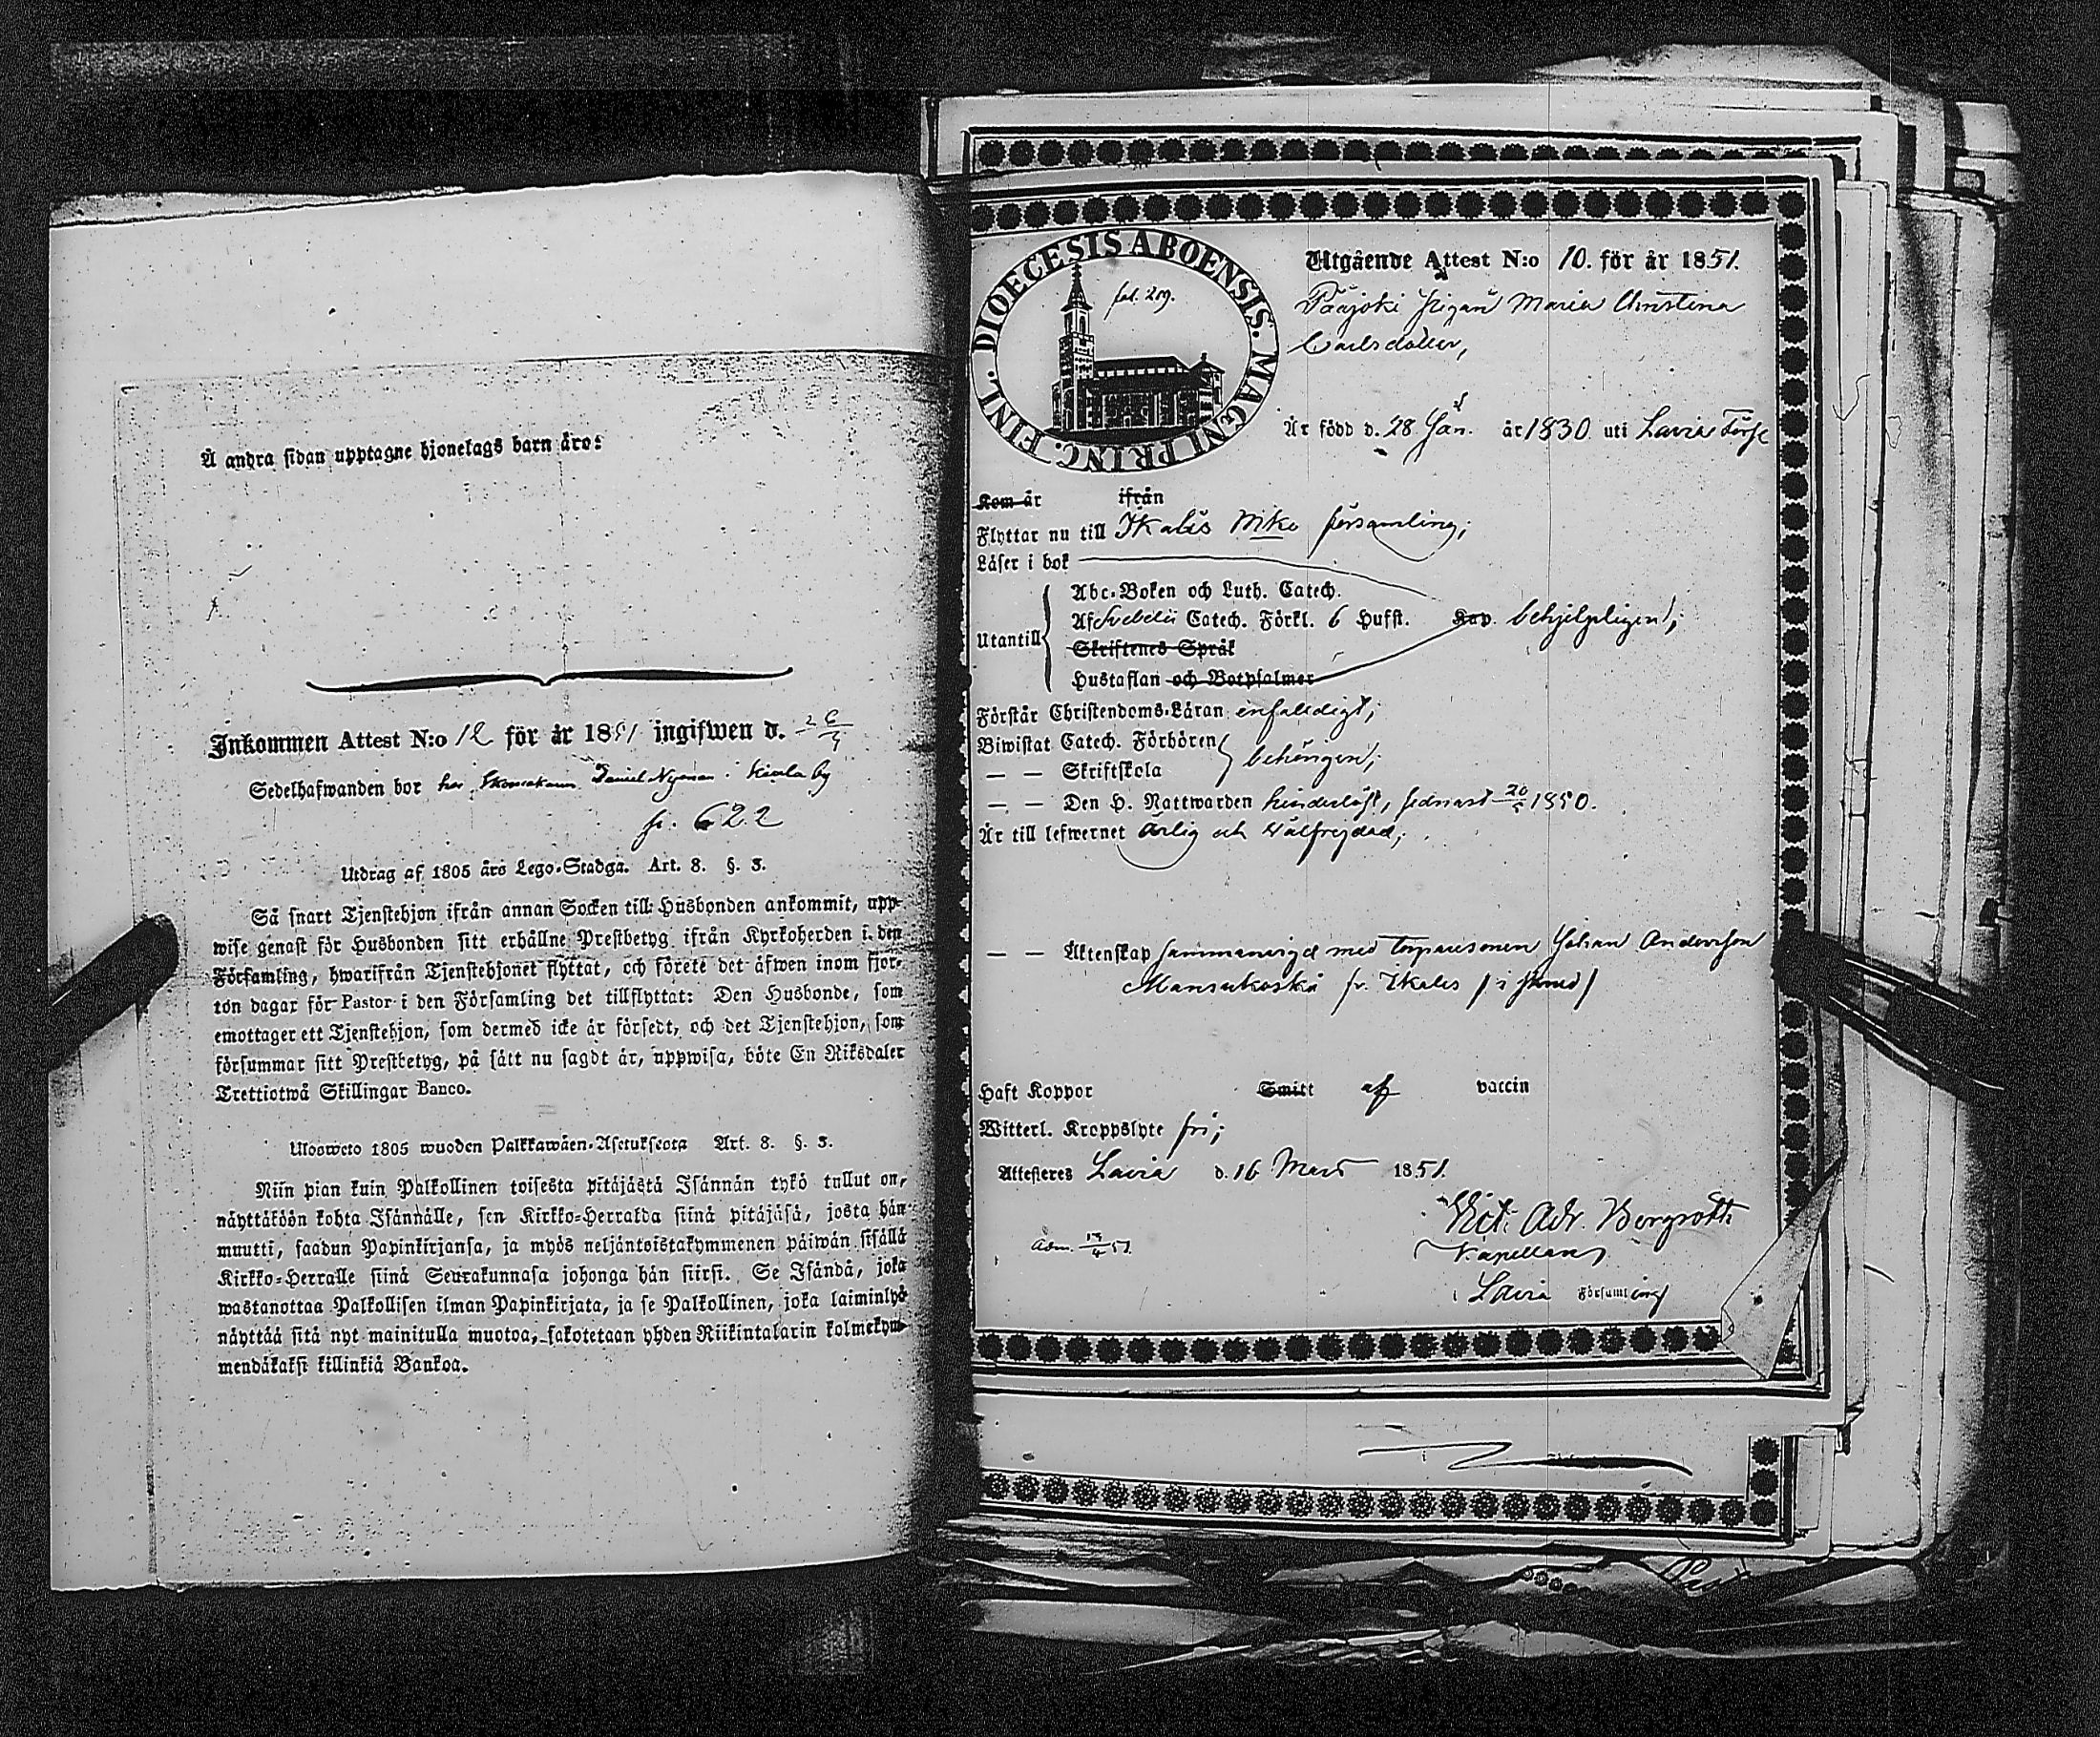 Å andra sidan upptagne hjonelags barn äro:
Inkommen Attest N:o 12 för år 1851 ingifwen d.
Sedelhafwanden bor hos Skomakaren Daniel Nyman i by
622
Utdrag af 1805 års Lego-Stadga. Art. 8. §. 3.
Så snart Tjenstehjon ifrån annan Socken till Husbonden ankommit, upp-
wise genast för Husbonden sitt erhållne Prestbetyg ifrån Kyrkoherden i den
Församling, hwarifrån Tjenstehjonet flyttat, och förete det äfwen inom fjor-
ton dagar för Pastor i den Församling det tillflyttat: Den Husbonde, som
emottager ett Tjenstehjon, som dermed icke är försedt, och det Tjenstehjon, som
försummar sitt Prestbetyg, på sätt nu sagdt är, uppwisa, böte En Riksdaler
Trettiotwå Skillingar Banco.
Ulosweto 1805 wuoden Palkkawäen-Asetuksesta Art. 8. §. 3.
Niin pian kuin Palkollinen toisesta pitäjästä Isännän tykö tullut on,
näyttäköön kohta Isännälle, sen Kirkko-Herralda siinä pitäjäsä, josta hän
muutti, saadun Papinkirjansa, ja myös neljäntoistakymmenen päiwän sisällä
Kirkko-Herralle siinä Seurakunnasa johonga hän siirsi. Se Isändä, joka
wastanottaa Palkollisen ilman Papinkirjata, ja se Palkollinen, joka laiminlyö
näyttää sitä nyt mainitulla muotoa, sakotetaan yhden Riikintalarin kolmekym-
mendäkaksi killinkiä Bankoa.
DIOECESIS ABOENSIS. MAGNI PRINC. FINL.
fol. 219.
Utgående Attest N:o 10. för år 1851.
Pääjoki pigan Maria Christina
Carlsdotter,
Är född d. 28 Jan. år 1830 uti Lavia
Kom år ifrån
Flyttar nu till Ikalis församling;
Läser i bok
Utantill
Abc-Boken och Luth. Catech.
Af Svebelii Catech. Förkl. 6 Hufst. Kap. behjelpligen;
Skriftenes Språk
Hustaflan och Botpsalmer
Förstår Christendoms-Läran enfaldigt;
Biwistat Catech. Förhören
— — Skriftskola behörigen;
— — Den H. Nattwarden hinderlöst, sednast 1850.
Är till lefwernet ärlig och välfrejdad;
— — Äktenskap sammanvigd med Torparesonen Johan Andersson
Mansukoski fr. Ikalis
Haft Koppor Smitt af vaccin
Witterl. Kroppslyte fri;
Attesteres Lavia d. 16 Mars 1851.
Vict. Adr. Bergroth
Kapellan
i Lavia Församling
Adm. 19/4 51.